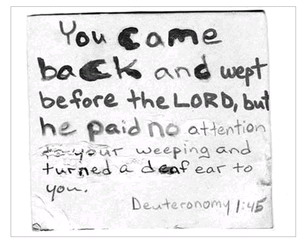 You came
back and wept
before the LORD, but
he paid no attention
to your weeping and
turned a deaf ear to
you.
Deuteronomy 1:45